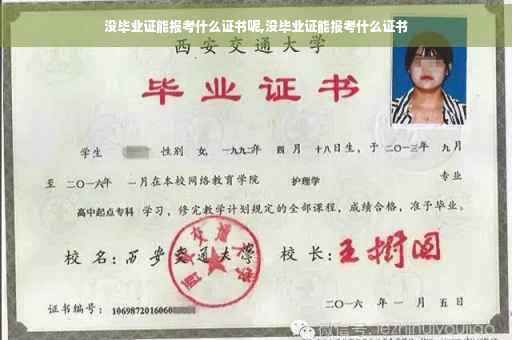 没毕业证能报考什么证书呢,没毕业证能报考什么证书
西安交通大学
毕业证书
学生 性别 女, 一九九二年 四 月 十八日生, 于 二〇一三年 九月
至 二〇一六年 一月在本校网络教育学院 护理学 专业
高中起点专科 学习, 修完教学计划规定的全部课程, 成绩合格, 准予毕业。
校 名: 西安交通大学 校 长: 王树国
西安交通大学
证书编号: 1069872016060
二〇一六 年 一 月 五 日
微信号: jezhihuiyoujiao